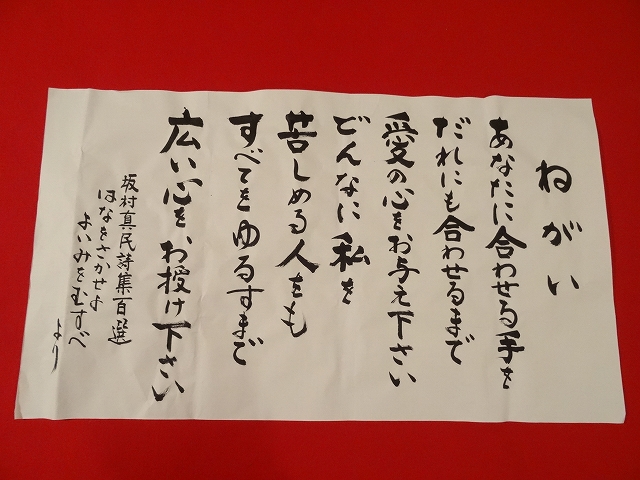 ねがい
あなたに合わせる手を
だれにも合わせるまで
愛の心をお与え下さい
どんなに私を
苦しめる人をも
すべてをゆるすまで
広い心をお授け下さい
坂村真民詩集百選
はなをさかせよ
よいみをむすべ
より